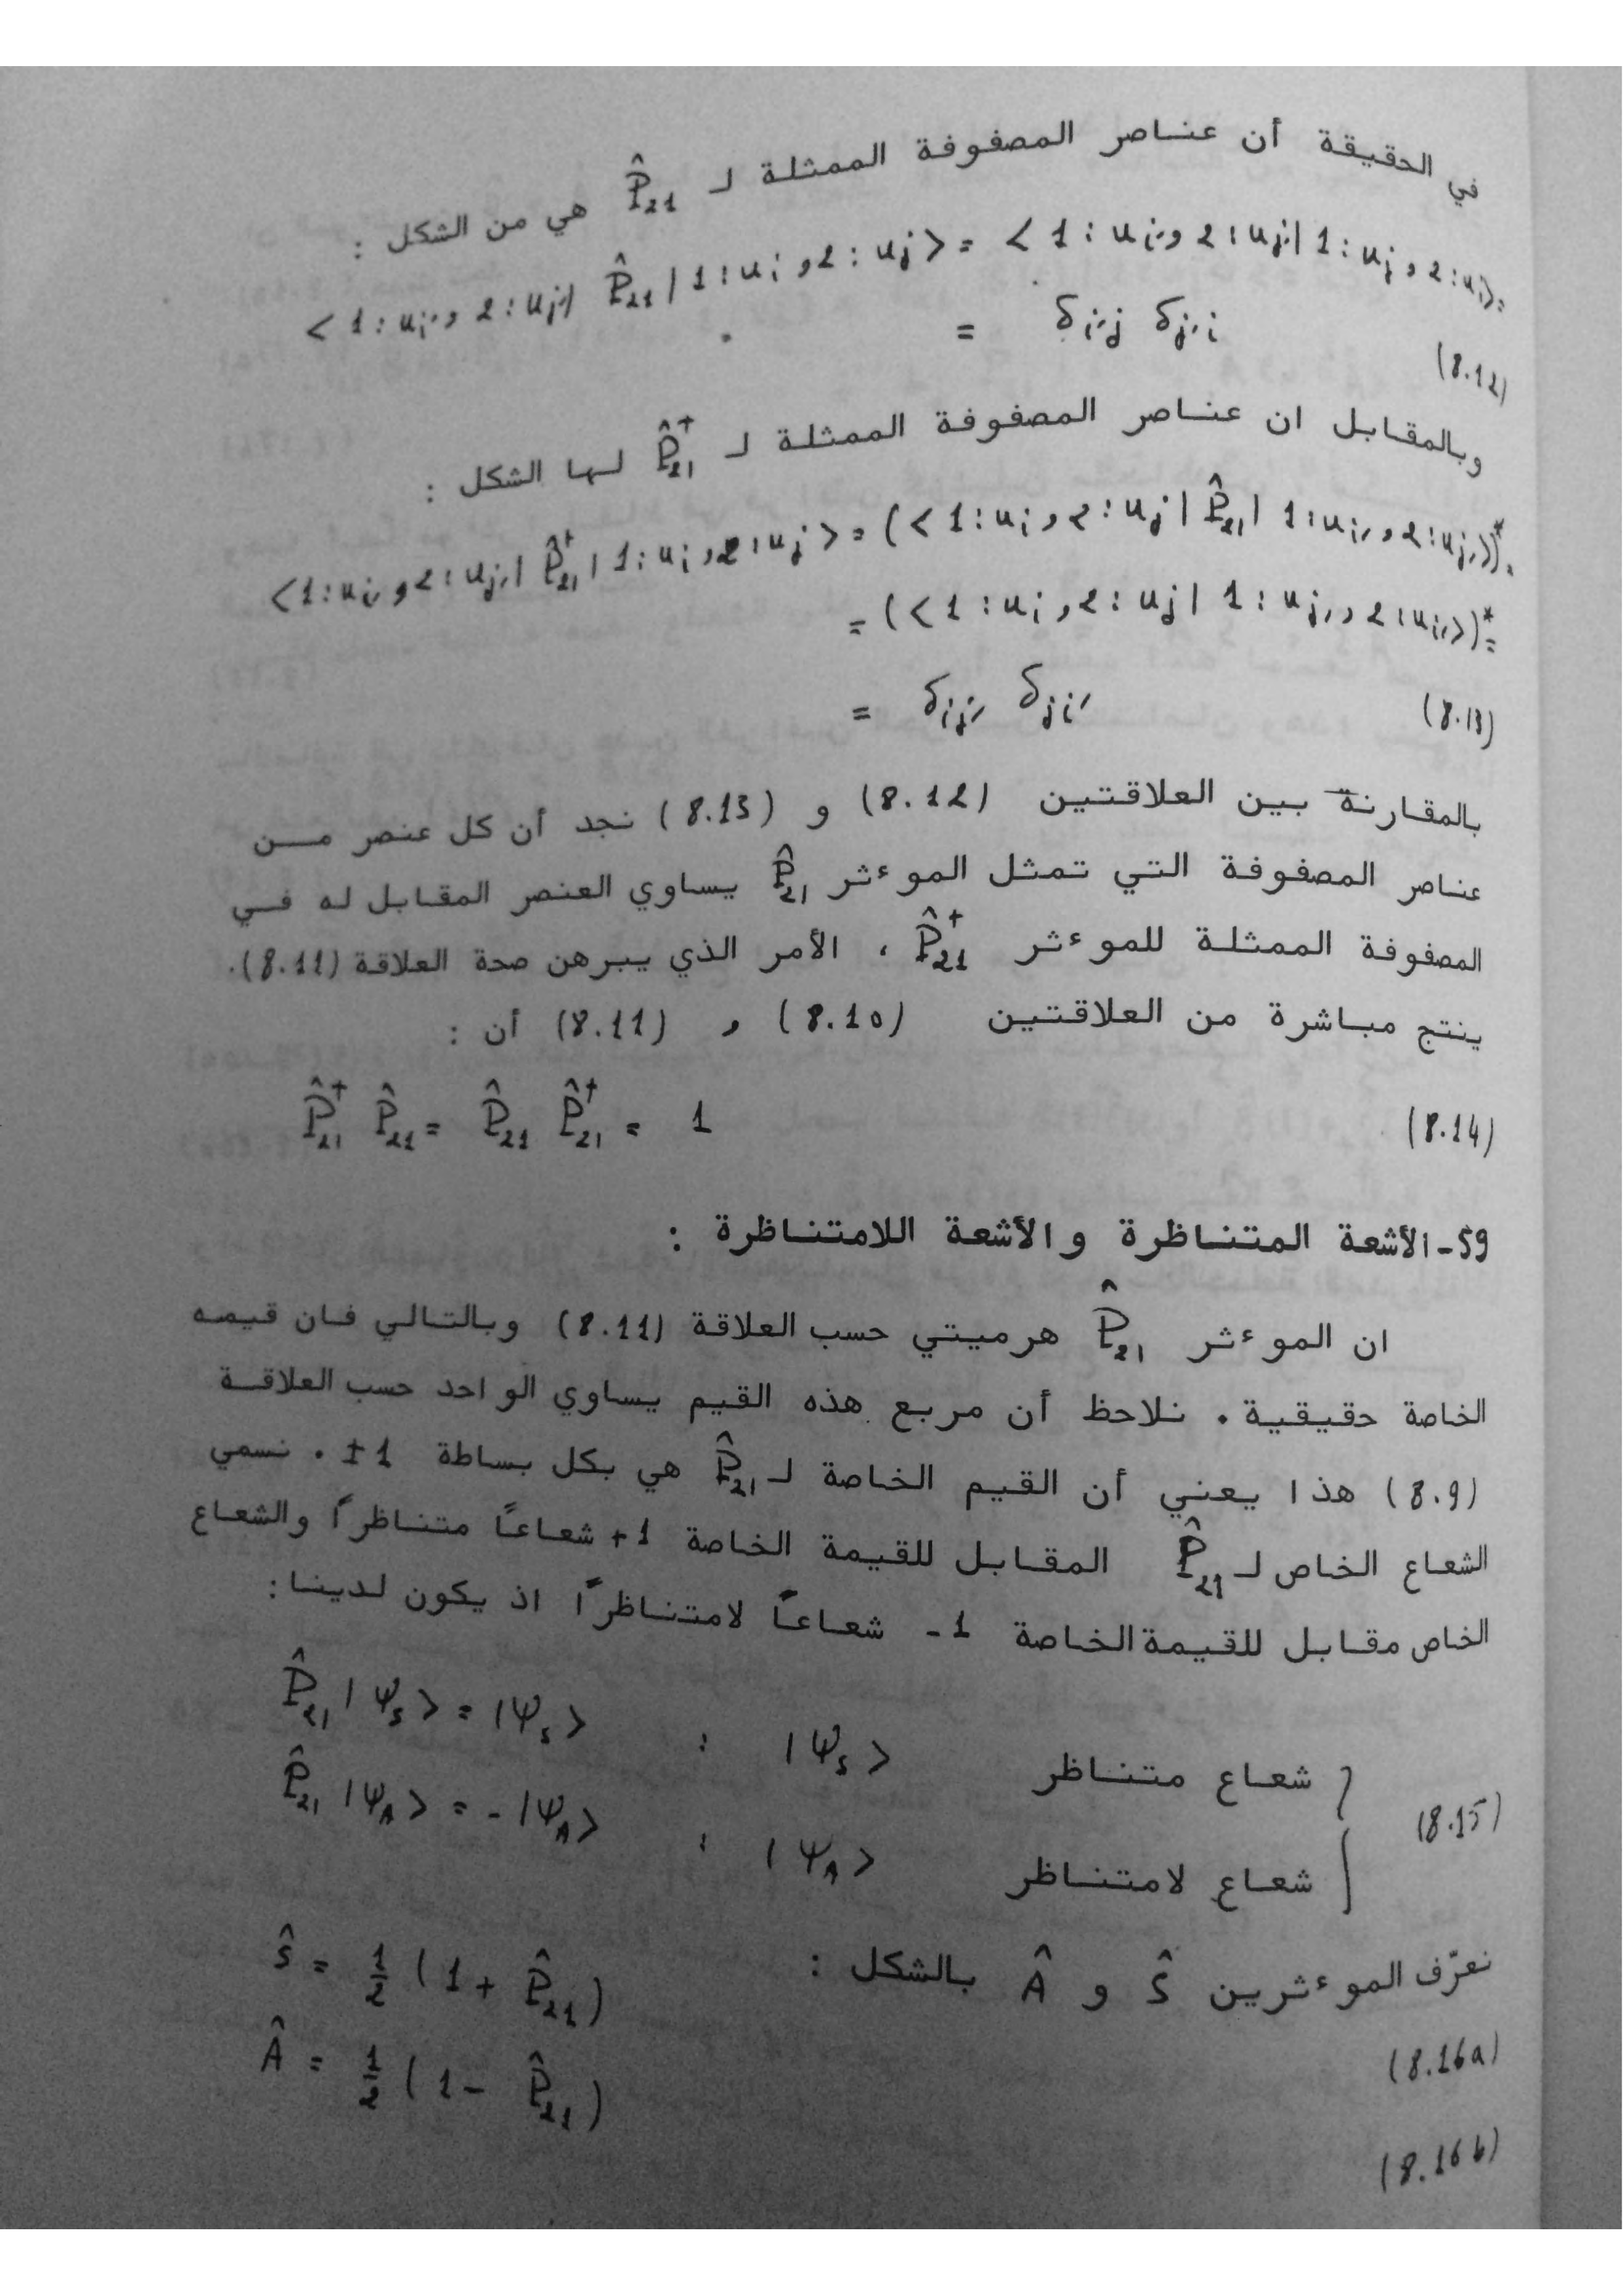 في الحقيقة أن عناصر المصفوفة الممثلة لـ P̂₂₁ هي من الشكل :
< 1 : uᵢ′ , 2 : uⱼ′ | P̂₂₁ | 1 : uᵢ , 2 : uⱼ > = < 1 : uᵢ′ , 2 : uⱼ′ | 1 : uⱼ , 2 : uᵢ > =
= δᵢ′ⱼ δⱼ′ᵢ (8.12)
وبالمقابل ان عناصر المصفوفة الممثلة لـ P̂₂₁⁺ لها الشكل :
< 1 : uᵢ′ , 2 : uⱼ′ | P̂₂₁⁺ | 1 : uᵢ , 2 : uⱼ > = ( < 1 : uᵢ , 2 : uⱼ | P̂₂₁ | 1 : uᵢ′ , 2 : uⱼ′ > )* =
= ( < 1 : uᵢ , 2 : uⱼ | 1 : uⱼ′ , 2 : uᵢ′ > )* =
= δᵢⱼ′ δⱼᵢ′ (8.13)
بالمقارنة بين العلاقتين (8.12) و (8.13) نجد أن كل عنصر من
عناصر المصفوفة التي تمثل الموءثر P̂₂₁ يساوي العنصر المقابل له في
المصفوفة الممثلة للموءثر P̂₂₁⁺ ، الأمر الذي يبرهن صحة العلاقة (8.11).
ينتج مباشرة من العلاقتين (8.10) و (8.11) أن :
P̂₂₁⁺ P̂₂₁ = P̂₂₁ P̂₂₁⁺ = 1 (8.14)
59-الأشعة المتناظرة والأشعة اللامتناظرة :
ان الموءثر P̂₂₁ هرميتي حسب العلاقة (8.11) وبالتالي فان قيمه
الخاصة حقيقية . نلاحظ أن مربع هذه القيم يساوي الواحد حسب العلاقة
(8.9) هذا يعني أن القيم الخاصة لـ P̂₂₁ هي بكل بساطة ±1 . نسمي
الشعاع الخاص لـ P̂₂₁ المقابل للقيمة الخاصة +1 شعاعاً متناظراً والشعاع
الخاص مقابل للقيمة الخاصة -1 شعاعاً لامتناظراً اذ يكون لدينا :
شعاع متناظر |Ψₛ> : P̂₂₁ |Ψₛ> = |Ψₛ>
(8.15)
شعاع لامتناظر |Ψ_A> : P̂₂₁ |Ψ_A> = - |Ψ_A>
نعرّف الموءثرين Ŝ و Â بالشكل :
Ŝ = ½ ( 1 + P̂₂₁ ) (8.16a)
Â = ½ ( 1 - P̂₂₁ ) (8.16b)